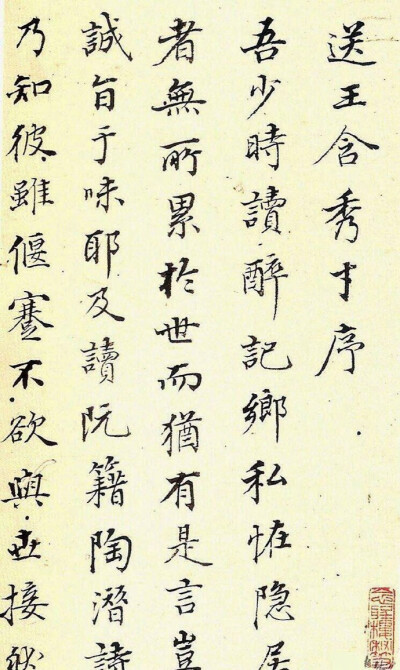 送王含秀才序
吾少時讀醉記鄉私恠隐居
者無所累於世而猶有是言豈
誠旨于味耶及讀阮籍陶潛詩
乃知彼雖偃蹇不欲與世接然